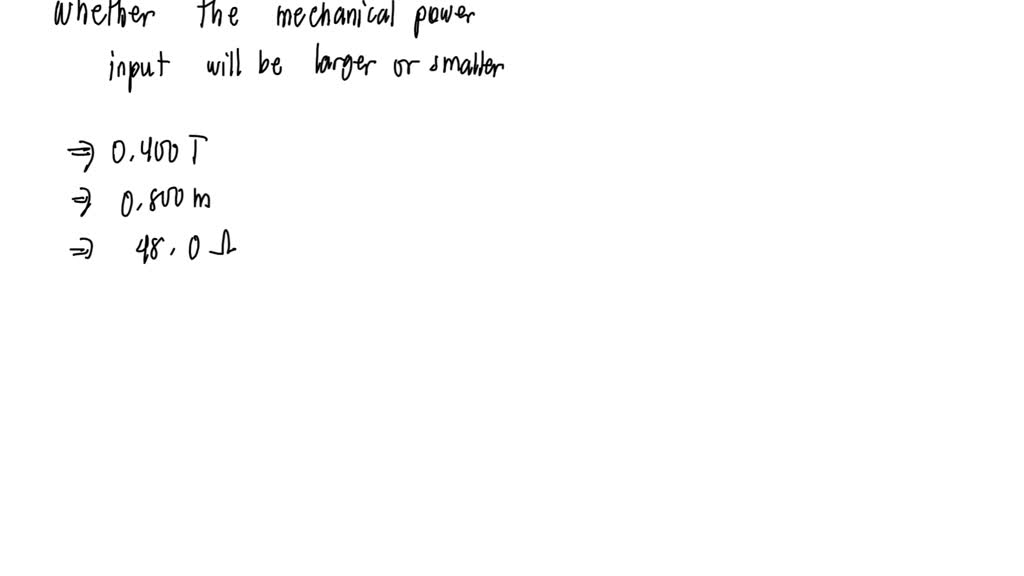 Whether the mechanical power
input will be larger or smaller
⇒ 0.400 T
⇒ 0.800 m
⇒ 48.0 Ω